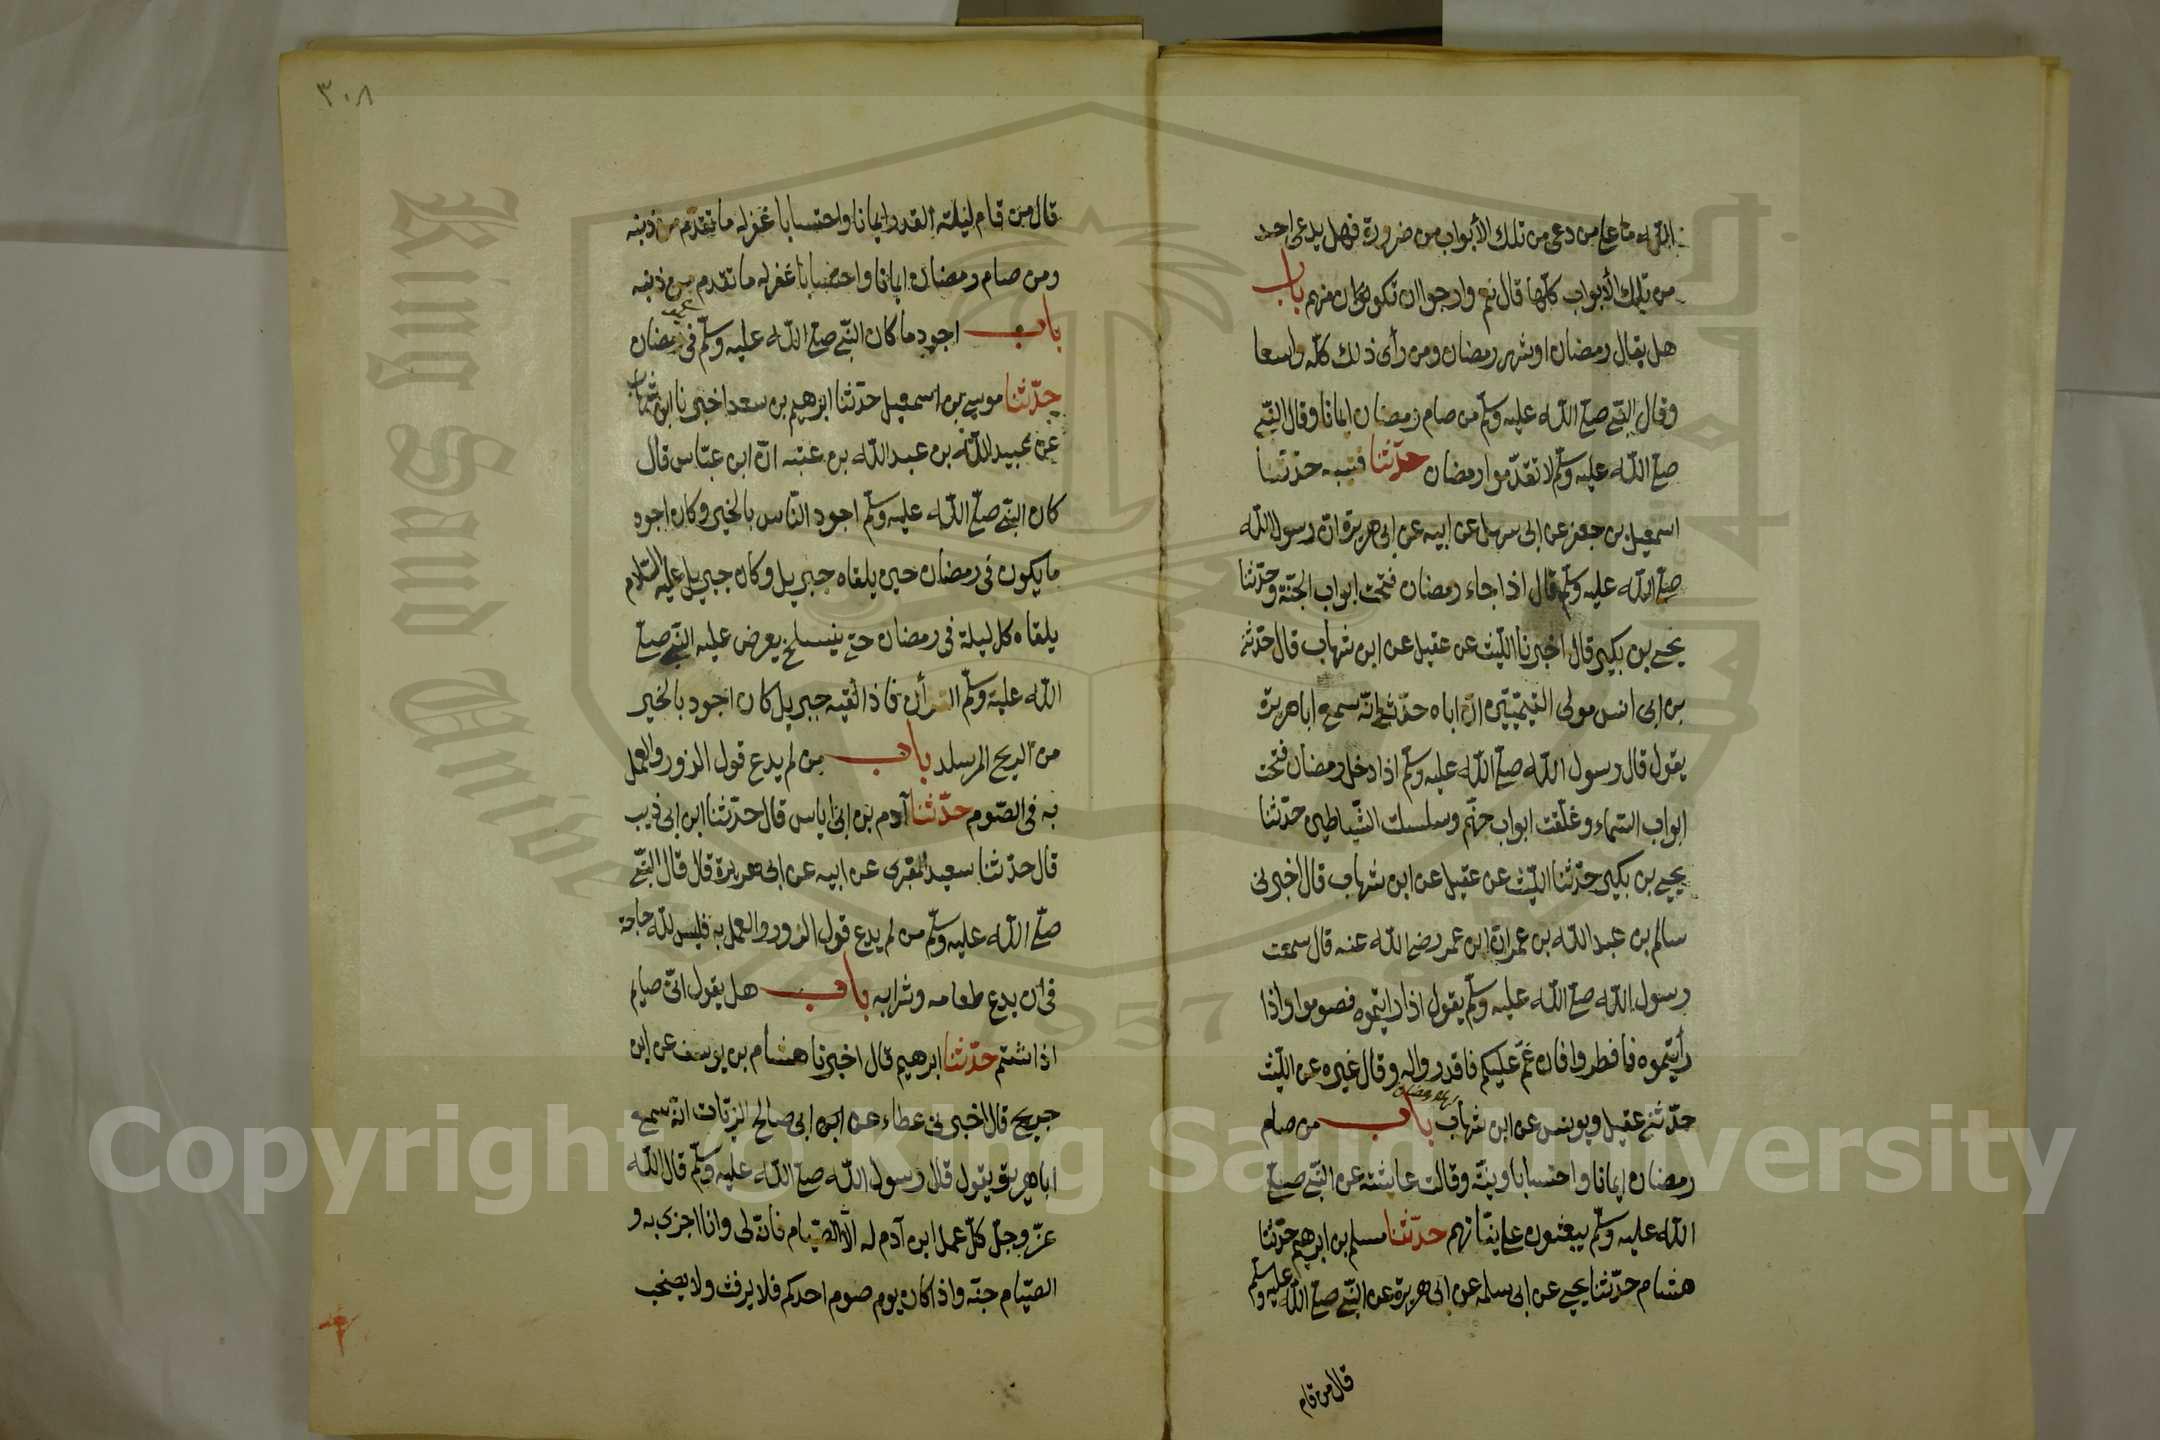 الله ما على من دعى من تلك الأبواب من ضرورة فهل يدعى احد
من تلك الأبواب كلها قال نعم وارجو ان تكون منهم باب
هل يقال رمضان او شهر رمضان ومن رأى ذلك كله واسعا
وقال النبي صلى الله عليه وسلم من صام رمضان ايمانا وقال النبي
صلى الله عليه وسلم لا تقدموا رمضان حدثنا قتيبه حدثنا
اسمعيل بن جعفر عن ابى سهيل عن ابيه عن ابى هريرة ان رسول الله
صلى الله عليه وسلم قال اذا جاء رمضان فتحت ابواب الجنة وحدثنا
يحيى بن بكير قال اخبرنا الليث عن عقيل عن ابن شهاب قال حدثنى
بن ابى انس مولى التيميين ان اباه حدثه انه سمع ابا هريرة
يقول قال رسول الله صلى الله عليه وسلم اذا دخل رمضان فتحت
ابواب السماء وغلقت ابواب جهنم وسلسلت الشياطين حدثنا
يحيى بن بكير حدثنا الليث عن عقيل عن ابن شهاب قال اخبرنى
سالم بن عبد الله بن عمر ان ابن عمر رضى الله عنه قال سمعت
رسول الله صلى الله عليه وسلم يقول اذا رايتموه فصوموا واذا
رأيتموه فافطروا فان غم عليكم فاقدروا له وقال غيره عن الليث
حدثنى عقيل ويونس عن ابن شهاب لهلال رمضان باب من صام
رمضان ايمانا واحتسابا ونية وقالت عايشة عن النبي صلى
الله عليه وسلم يبعثون على نياتهم حدثنا مسلم بن ابرهيم حدثنا
هشام حدثنا يحيى عن ابى سلمه عن ابى هريرة عن النبي صلى الله عليه وسلم
قال من قام
٣٠٨
قال من قام ليلة القدر ايمانا واحتسابا غفر له ما تقدم من ذنبه
ومن صام رمضان ايمانا واحتسابا غفر له ما تقدم من ذنبه
باب اجود ما كان النبي صلى الله عليه وسلم يكون فى رمضان
حدثنا موسى بن اسمعيل حدثنا ابرهيم بن سعد اخبرنا ابن شهاب
عن عبيد الله بن عبد الله بن عتبه ان ابن عباس قال
كان النبي صلى الله عليه وسلم اجود الناس بالخير وكان اجود
ما يكون فى رمضان حين يلقاه جبريل وكان جبريل عليه السلام
يلقاه كل ليلة فى رمضان حتى ينسلخ يعرض عليه النبي صلى
الله عليه وسلم القرأن فاذا لقيه جبريل كان اجود بالخير
من الريح المرسله باب من لم يدع قول الزور والعمل
به فى الصوم حدثنا آدم بن ابى اياس قال حدثنا ابن ابى ذيب
قال حدثنا سعيد المقبرى عن ابيه عن ابى هريرة قال قال النبي
صلى الله عليه وسلم من لم يدع قول الزور والعمل به فليس لله حاجة
فى ان يدع طعامه وشرابه باب هل يقول انى صايم
اذا شتم حدثنا ابرهيم قال اخبرنا هشام بن يوسف عن ابن
جريج قال اخبرنى عطاء عن ابن ابى صالح الزيات انه سمع
ابا هريرة يقول قال رسول الله صلى الله عليه وسلم قال الله
عز وجل كل عمل ابن آدم له الا الصيام فانه لى وانا اجزى به و
الصيام جنة واذا كان يوم صوم احدكم فلا يرفث ولا يصخب
King Saud University
1957
Copyright © King Saud University